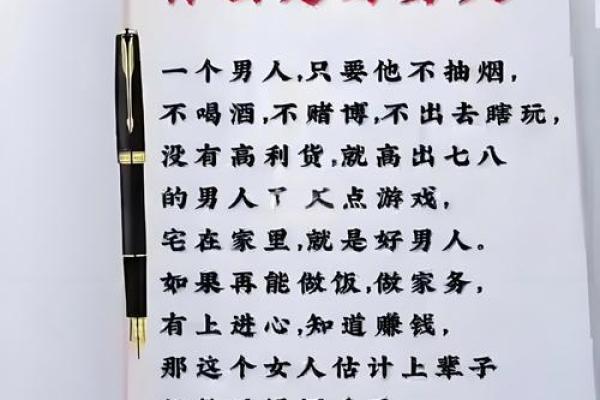 一个男人,只要他不抽烟,
不喝酒,不赌博,不出去瞎玩,
没有高利货,就高出七八
的男人 点游戏,
宅在家里,就是好男人。
如果再能做饭,做家务,
有上进心,知道赚钱,
那这个女人估计上辈子